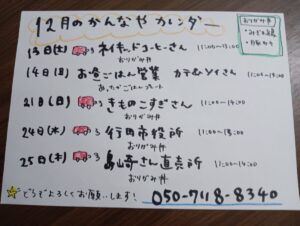 12月のかんなやカレンダー
おりがみ丼
13日(土) ネイキッドコーヒーさん 11:00~15:00
おりがみ丼
14日(日) お昼ごはん営業 カテムソイさん
あったかごはんプレート
21日(日) きものこすぎさん 11:00~14:00
おりがみ丼
24日(水) 行田市役所 11:00~13:00
おりがみ丼
25日(木) 島崎さん直売所 11:00~14:00
おりがみ丼
どうぞよろしくお願いします!
050-7118-8340